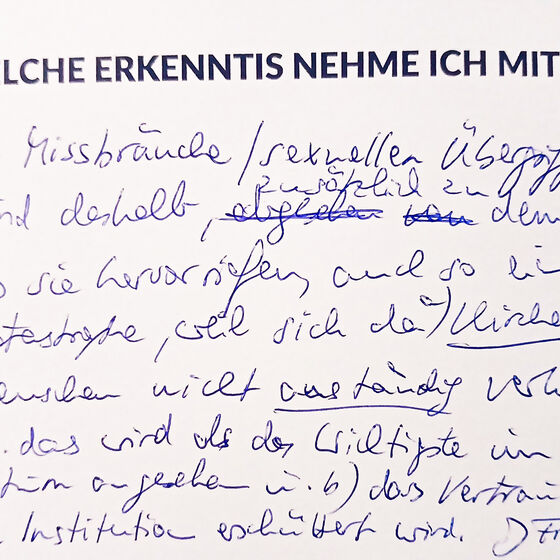 LCHE ERKENNTIS NEHME ICH MIT
Missbräuche / sexuellen Übergr
zusätzlich zu
nd deshalb, abgesehen von dem
sie hervorrufen, auch so
tastrophe, weil sich da a) Kirche
enschen nicht anständig verh
. das wird als das Wichtigste im
tum angesehen u. b) das Vertrau
Institution erschüttert wird.